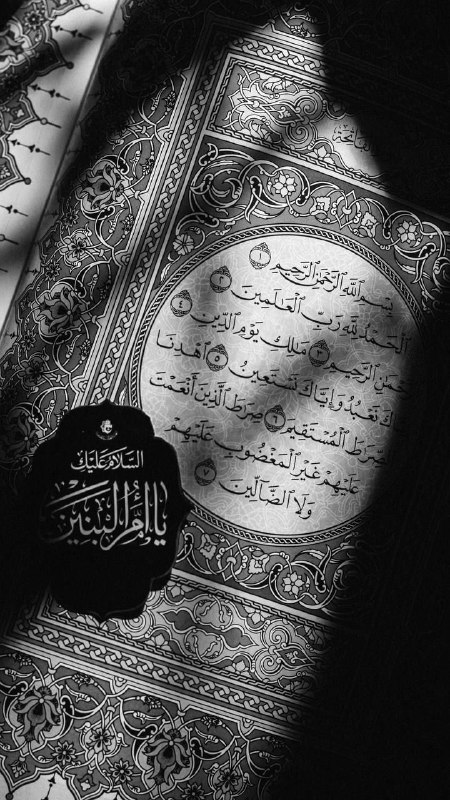 الفاتحة
بِسْمِ ٱللَّهِ ٱلرَّحْمَٰنِ ٱلرَّحِيمِ ١
ٱلْحَمْدُ لِلَّهِ رَبِّ ٱلْعَٰلَمِينَ ٢
ٱلرَّحْمَٰنِ ٱلرَّحِيمِ ٣ مَٰلِكِ يَوْمِ ٱلدِّينِ ٤
إِيَّاكَ نَعْبُدُ وَإِيَّاكَ نَسْتَعِينُ ٥ ٱهْدِنَا
ٱلصِّرَٰطَ ٱلْمُسْتَقِيمَ ٦ صِرَٰطَ ٱلَّذِينَ أَنْعَمْتَ
عَلَيْهِمْ غَيْرِ ٱلْمَغْضُوبِ عَلَيْهِمْ
وَلَا ٱلضَّآلِّينَ ٧
السَّلَامُ عَلَيْكِ
يَا أُمَّ الْبَنِينَ